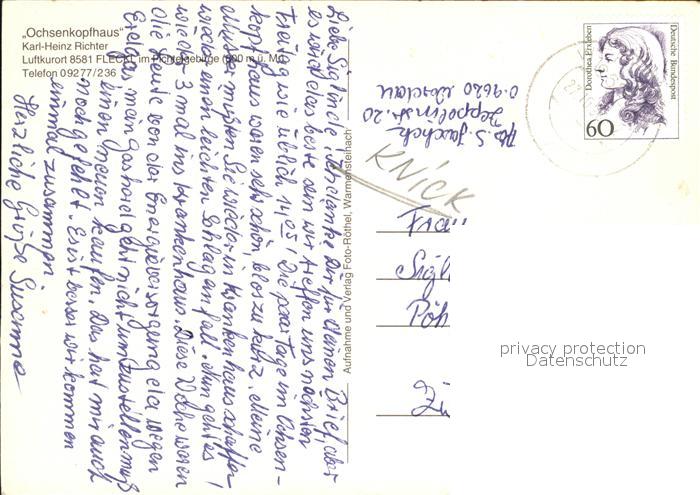 „Ochsenkopfhaus"
Karl-Heinz Richter
Luftkurort 8581 FLECKL im Fichtelgebirge (800 m ü. M.)
Telefon 09277/236
Liebe Sieglinde! Ich danke Dir für Deinen Brief, aber
es wird das beste sein wir treffen uns nächsten
Freitag wie üblich 14 05. Die paar Tage im Ochsen-
kopfhaus waren sehr schön, blos zu kurz. Meine
Mutter mußten Sie wieder in Krankenhaus schaffen
wieder einen leichten Schlaganfall. Nun geht es
wieder 3 mal ins Krankenhaus. Diese Woche waren
die Leute von der Energieversorgung da, wegen
Erdgas, mein Gasherd geht nicht umzustellen, muß
einen neuen kaufen. Das hat mir auch
noch gefehlt. Es ist besser wir kommen
einmal zusammen.
Herzliche Grüße Susanne
Aufnahme und Verlag Foto-Röthel, Warmensteinach
Abs. S.
Zeppelinstr. 20
O-9620 Werdau
KNICK
Frau
Sigl
Pöh
Zw
Deutsche Bundespost
Dorothea Erxleben
60
privacy protection
Datenschutz